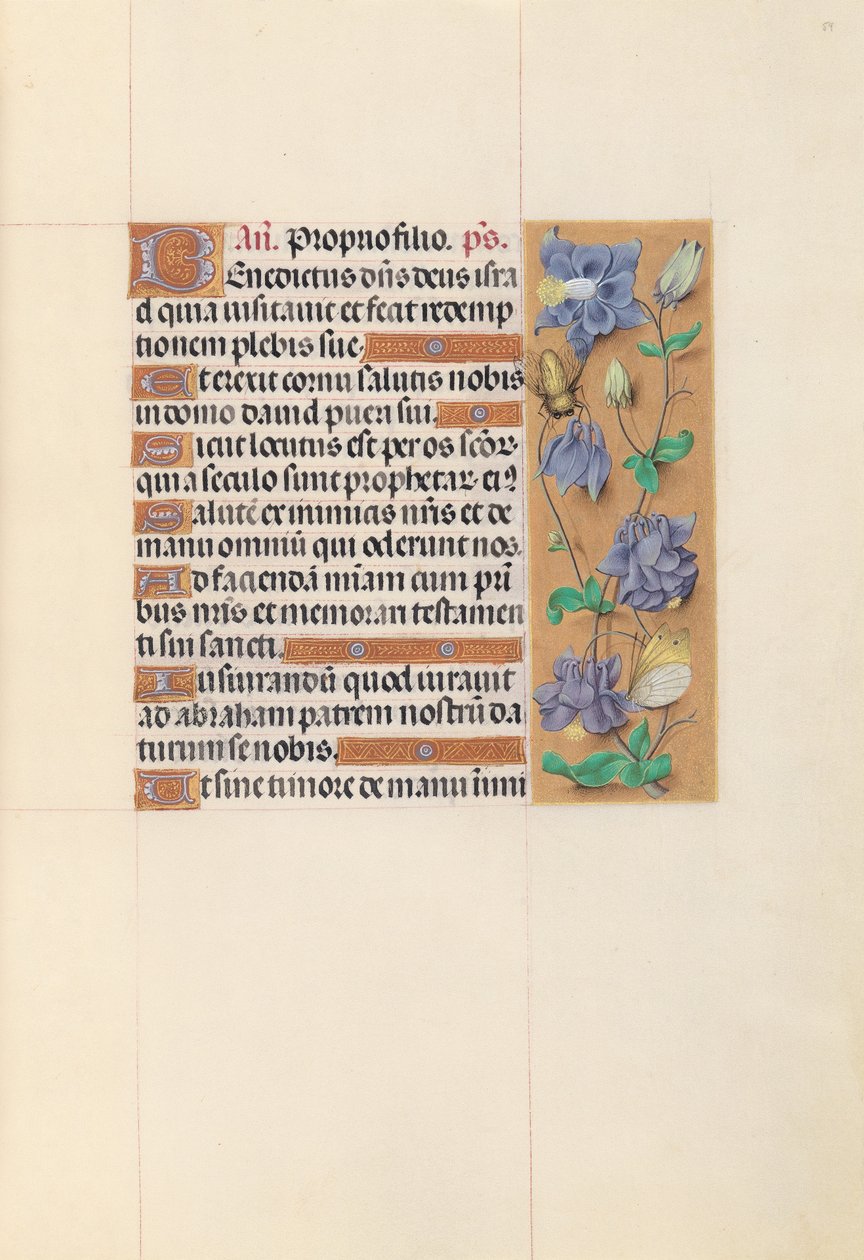 84
Añ. Proprio filio. ps.
BEnedictus dñs deus isra
el quia uisitauit et fecit redemp
tionem plebis sue.
Et erexit cornu salutis nobis
in domo dauid pueri sui.
Sicut locutus est per os scõr
qui a seculo sunt prophetar eiꝰ
Salutē ex inimicis nr̄is et de
manu omniū qui oderunt nos.
Ad faciendā mīam cum patri
bus nr̄is et memorari testamen
ti sui sancti.
Iusiurandū quod iurauit
ad abraham patrem nostrū da
turum se nobis.
Ut sine timore de manu inimi